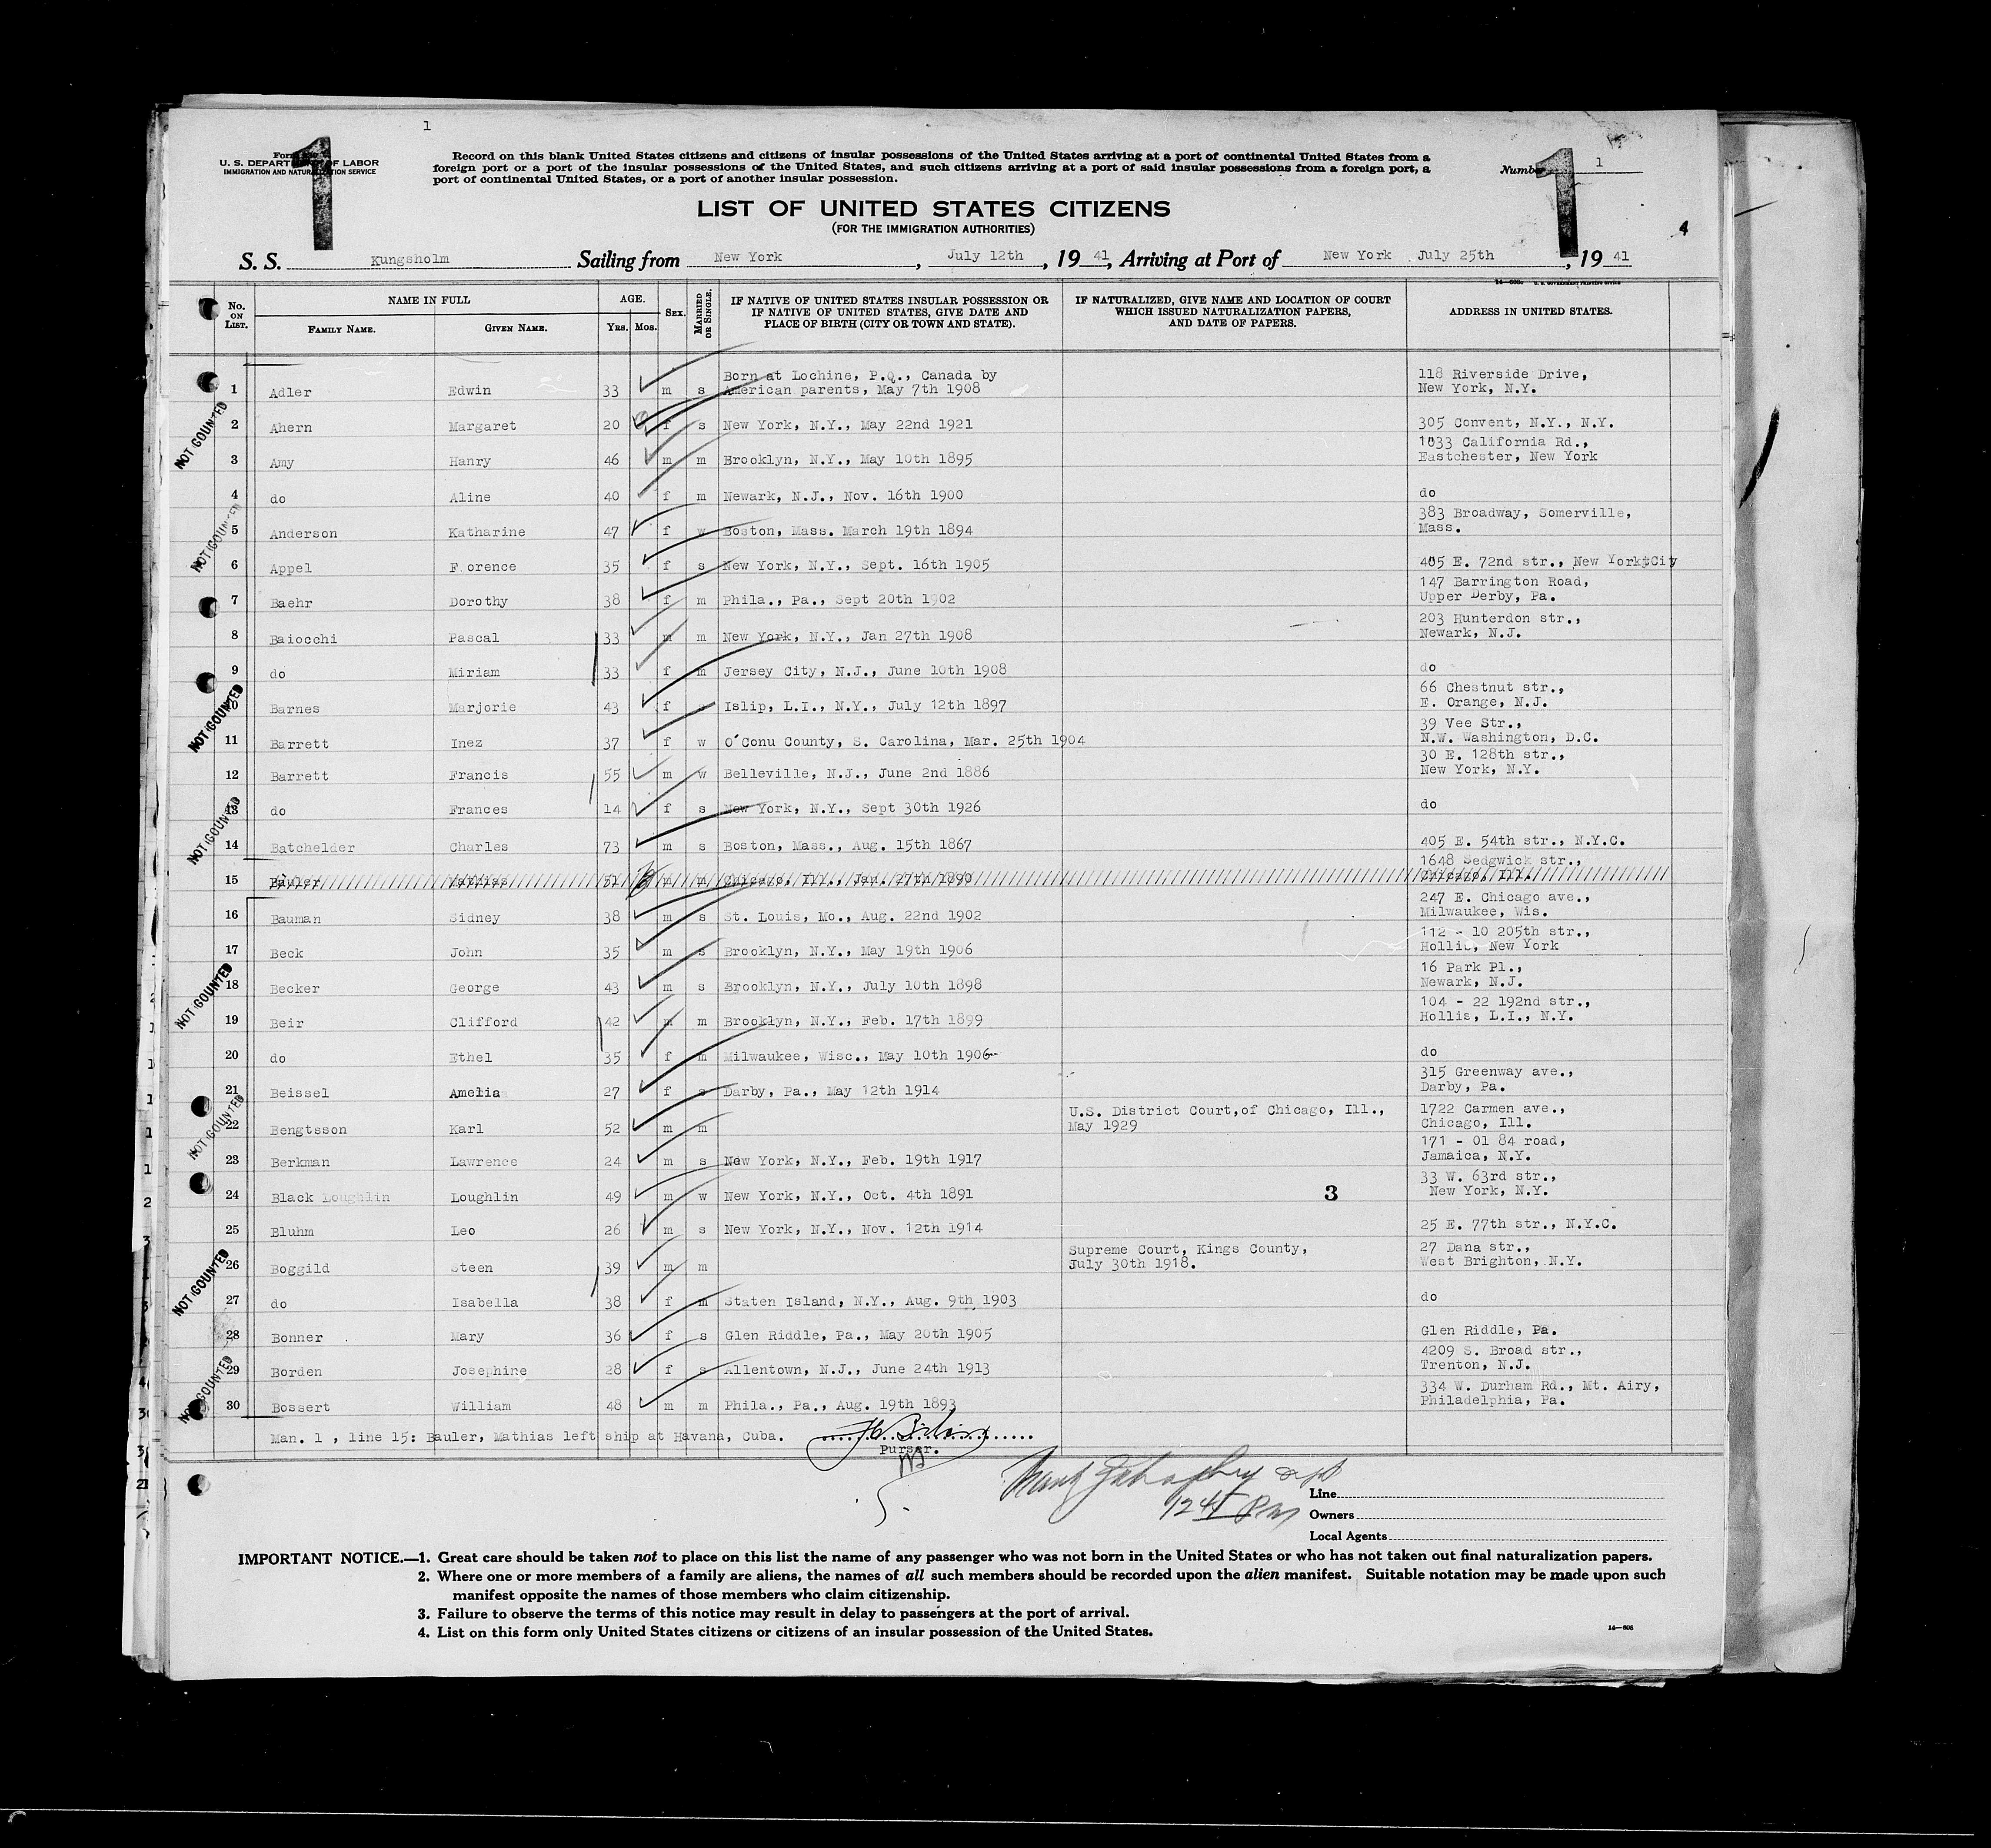 1
Form
U. S. DEPARTMENT OF LABOR
IMMIGRATION AND NATURALIZATION SERVICE
1
Record on this blank United States citizens and citizens of insular possessions of the United States arriving at a port of continental United States from a
foreign port or a port of the insular possessions of the United States, and such citizens arriving at a port of said insular possessions from a foreign port, a
port of continental United States, or a port of another insular possession.
Number 1
1
LIST OF UNITED STATES CITIZENS
(FOR THE IMMIGRATION AUTHORITIES)
4
S. S. Kungsholm Sailing from New York, July 12th, 19 41, Arriving at Port of New York July 25th, 19 41
14—608 U. S. GOVERNMENT PRINTING OFFICE
No. ON LIST. NAME IN FULL FAMILY NAME. GIVEN NAME. AGE. Yrs. Mos. SEX. MARRIED OR SINGLE. IF NATIVE OF UNITED STATES INSULAR POSSESSION OR IF NATIVE OF UNITED STATES, GIVE DATE AND PLACE OF BIRTH (CITY OR TOWN AND STATE). IF NATURALIZED, GIVE NAME AND LOCATION OF COURT WHICH ISSUED NATURALIZATION PAPERS, AND DATE OF PAPERS. ADDRESS IN UNITED STATES.
1 Adler Edwin 33 m s Born at Lochine, P.Q., Canada by American parents, May 7th 1908 118 Riverside Drive, New York, N.Y.
NOT COUNTED
2 Ahern Margaret 20 f s New York, N.Y., May 22nd 1921 305 Convent, N.Y., N.Y.
3 Amy Hanry 46 m m Brooklyn, N.Y., May 10th 1895 1033 California Rd., Eastchester, New York
4 do Aline 40 f m Newark, N.J., Nov. 16th 1900 do
NOT COUNTED
5 Anderson Katharine 47 f w Boston, Mass. March 19th 1894 383 Broadway, Somerville, Mass.
6 Appel F.orence 35 f s New York, N.Y., Sept. 16th 1905 405 E. 72nd str., New York City
7 Baehr Dorothy 38 f m Phila., Pa., Sept 20th 1902 147 Barrington Road, Upper Derby, Pa.
8 Baiocchi Pascal 33 m m New York, N.Y., Jan 27th 1908 203 Hunterdon str., Newark, N.J.
9 do Miriam 33 f m Jersey City, N.J., June 10th 1908 do
NOT COUNTED
10 Barnes Marjorie 43 f Islip, L.I., N.Y., July 12th 1897 66 Chestnut str., E. Orange, N.J.
11 Barrett Inez 37 f w O'Conu County, S. Carolina, Mar. 25th 1904 39 Vee Str., N.W. Washington, D.C.
12 Barrett Francis 55 m w Belleville, N.J., June 2nd 1886 30 E. 128th str., New York, N.Y.
NOT COUNTED
13 do Frances 14 f s New York, N.Y., Sept 30th 1926 do
14 Batchelder Charles 73 m s Boston, Mass., Aug. 15th 1867 405 E. 54th str., N.Y.C.
15 Bauler Mathias 51 m m Chicago, Ill., Jan. 27th 1890 1648 Sedgwick str., Chicago, Ill.
16 Bauman Sidney 38 m s St. Louis, Mo., Aug. 22nd 1902 247 E. Chicago ave., Milwaukee, Wis.
17 Beck John 35 m s Brooklyn, N.Y., May 19th 1906 112 - 10 205th str., Hollis, New York
NOT COUNTED
18 Becker George 43 m s Brooklyn, N.Y., July 10th 1898 16 Park Pl., Newark, N.J.
19 Beir Clifford 42 m m Brooklyn, N.Y., Feb. 17th 1899 104 - 22 192nd str., Hollis, L.I., N.Y.
20 do Ethel 35 f m Milwaukee, Wisc., May 10th 1906 do
21 Beissel Amelia 27 f s Darby, Pa., May 12th 1914 315 Greenway ave., Darby, Pa.
NOT COUNTED
22 Bengtsson Karl 52 m m U.S. District Court,of Chicago, Ill., May 1929 1722 Carmen ave., Chicago, Ill.
23 Berkman Lawrence 24 m s New York, N.Y., Feb. 19th 1917 171 - 01 84 road, Jamaica, N.Y.
24 Black Loughlin Loughlin 49 m w New York, N.Y., Oct. 4th 1891 3 33 W. 63rd str., New York, N.Y.
25 Bluhm Leo 26 m s New York, N.Y., Nov. 12th 1914 25 E. 77th str., N.Y.C.
NOT COUNTED
26 Boggild Steen 39 m m Supreme Court, Kings County, July 30th 1918. 27 Dana str., West Brighton, N.Y.
27 do Isabella 38 f m Staten Island, N.Y., Aug. 9th 1903 do
28 Bonner Mary 36 f s Glen Riddle, Pa., May 20th 1905 Glen Riddle, Pa.
NOT COUNTED
29 Borden Josephine 28 f s Allentown, N.J., June 24th 1913 4209 S. Broad str., Trenton, N.J.
30 Bossert William 48 m m Phila., Pa., Aug. 19th 1893 334 W. Durham Rd., Mt. Airy, Philadelphia, Pa.
Man. 1 , line 15: Bauler, Mathias left ship at Havana, Cuba.
Purser.
1245 PM
Line
Owners
Local Agents
IMPORTANT NOTICE.—1. Great care should be taken not to place on this list the name of any passenger who was not born in the United States or who has not taken out final naturalization papers.
2. Where one or more members of a family are aliens, the names of all such members should be recorded upon the alien manifest. Suitable notation may be made upon such
manifest opposite the names of those members who claim citizenship.
3. Failure to observe the terms of this notice may result in delay to passengers at the port of arrival.
4. List on this form only United States citizens or citizens of an insular possession of the United States.
14—608